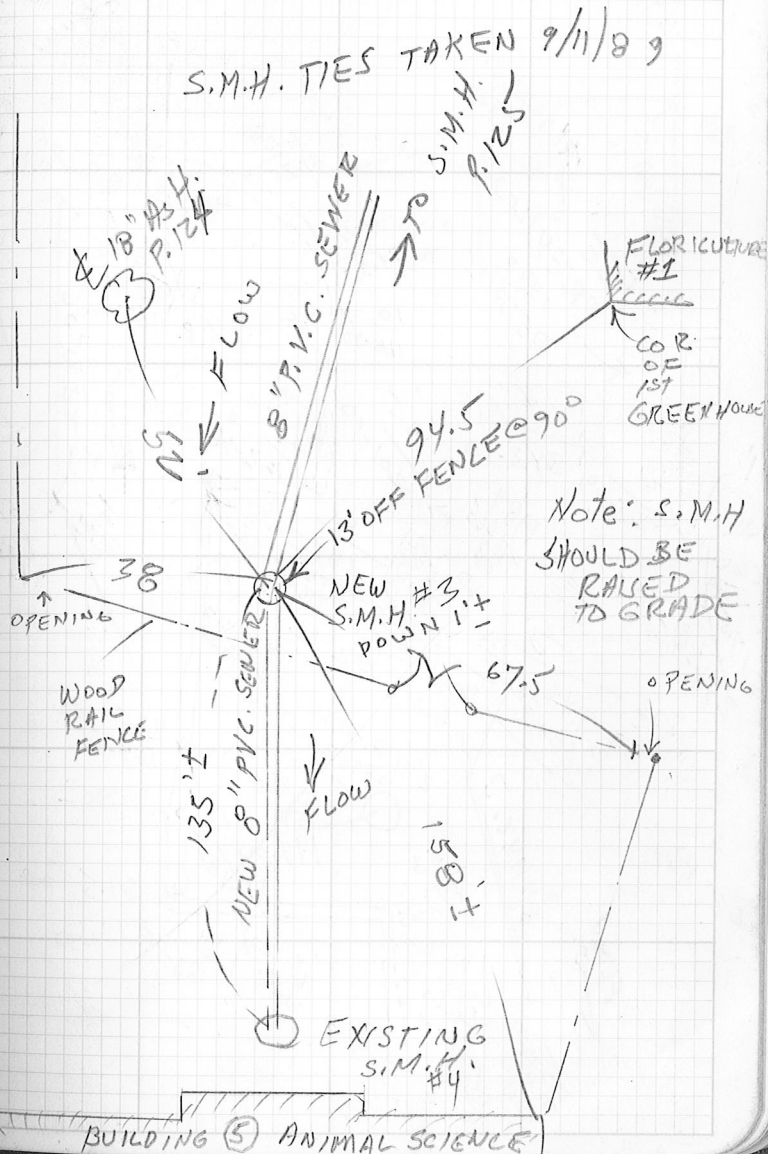 S.M.H. TIES TAKEN 9/11/89
TO S.M.H.
P.125
18" ASH.
P.124
FLOW
8" P.V.C. SEWER
FLORICULTURE
#1
COR.
OF
1ST
GREENHOUSE
94.5
13' OFF FENCE @ 90°
Note: S.M.H
SHOULD BE
RAISED
TO GRADE
38
OPENING
NEW
S.M.H. #3
DOWN 1'±
67.5
OPENING
WOOD
RAIL
FENCE
135'±
NEW 8" PVC. SEWER
FLOW
158'±
EXISTING
S.M.H.
#4
BUILDING 5 ANIMAL SCIENCE